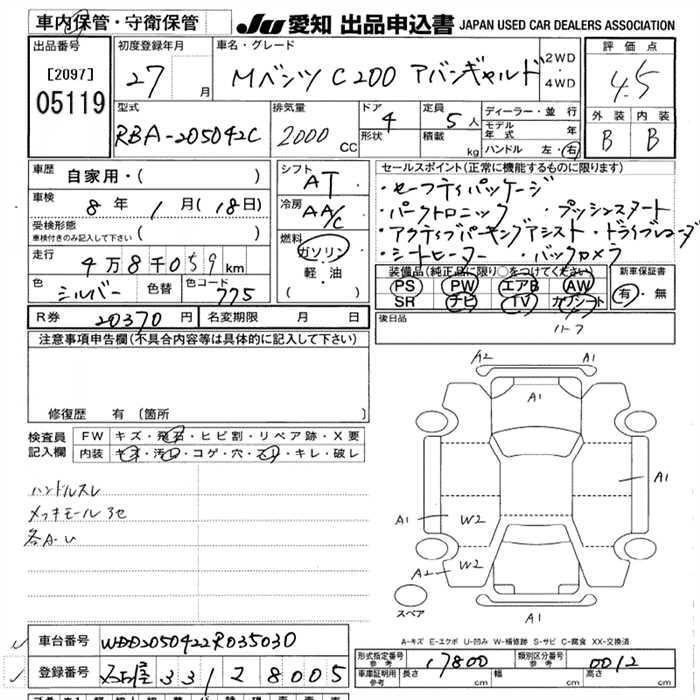 車内保管・守衛保管
JU 愛知 出品申込書 JAPAN USED CAR DEALERS ASSOCIATION
出品番号
[2097]
05119
初度登録年月
27 月
車名・グレード
Mベンツ C200 アバンギャルド
2WD
・
4WD
評価点
4.5
外装 内装
B B
型式
RBA-205042C
排気量
2000 CC
ドア 4
形状
定員 5 人
積載 kg
ディーラー・並行
モデル年式 年
ハンドル 左・右
車歴
自家用・( )
車検
8年 1月(18日)
受検形態
車検付きのみ記入して下さい ( )
走行
4万8千059km
色
シルバー 色替
色コード 775
シフト
AT
冷房
AA/C
燃料
ガソリン
・
軽・油
( )
セールスポイント(正常に機能するものに限ります)
・セーフティパッケージ
・パークトロニック ・プッシュスタート
・アクティブパーキングアシスト・ドライブレコーダ
・シートヒーター ・バックカメラ
装備品(純正品に限り○をつけてください)
PS PW エアB AW
SR ナビ TV カワシート
新車保証書
有・無
後日品
R券 20370 円
名変期限 月 日
注意事項申告欄(不具合内容等は具体的に記入して下さい)
修復歴 有 (箇所
検査員
記入欄
FW キズ・飛石・ヒビ割・リペア跡・X要
内装 キズ・汚れ・コゲ・穴・スレ・キレ・破レ
ハンドルスレ
メッキモール
各A-U
A2 A1
A1
A1
A1 W2
A2 W2
A1
スペア
A-キズ E-エクボ U-凹み W-補修跡 S-サビ C-腐食 XX-交換済
車台番号 WDD2050422R035030
登録番号 331 28005
形式指定番号
参考
17800
類別区分番号
参考
0012
車庫証明用
参考
長さ cm 幅 cm 高さ cm